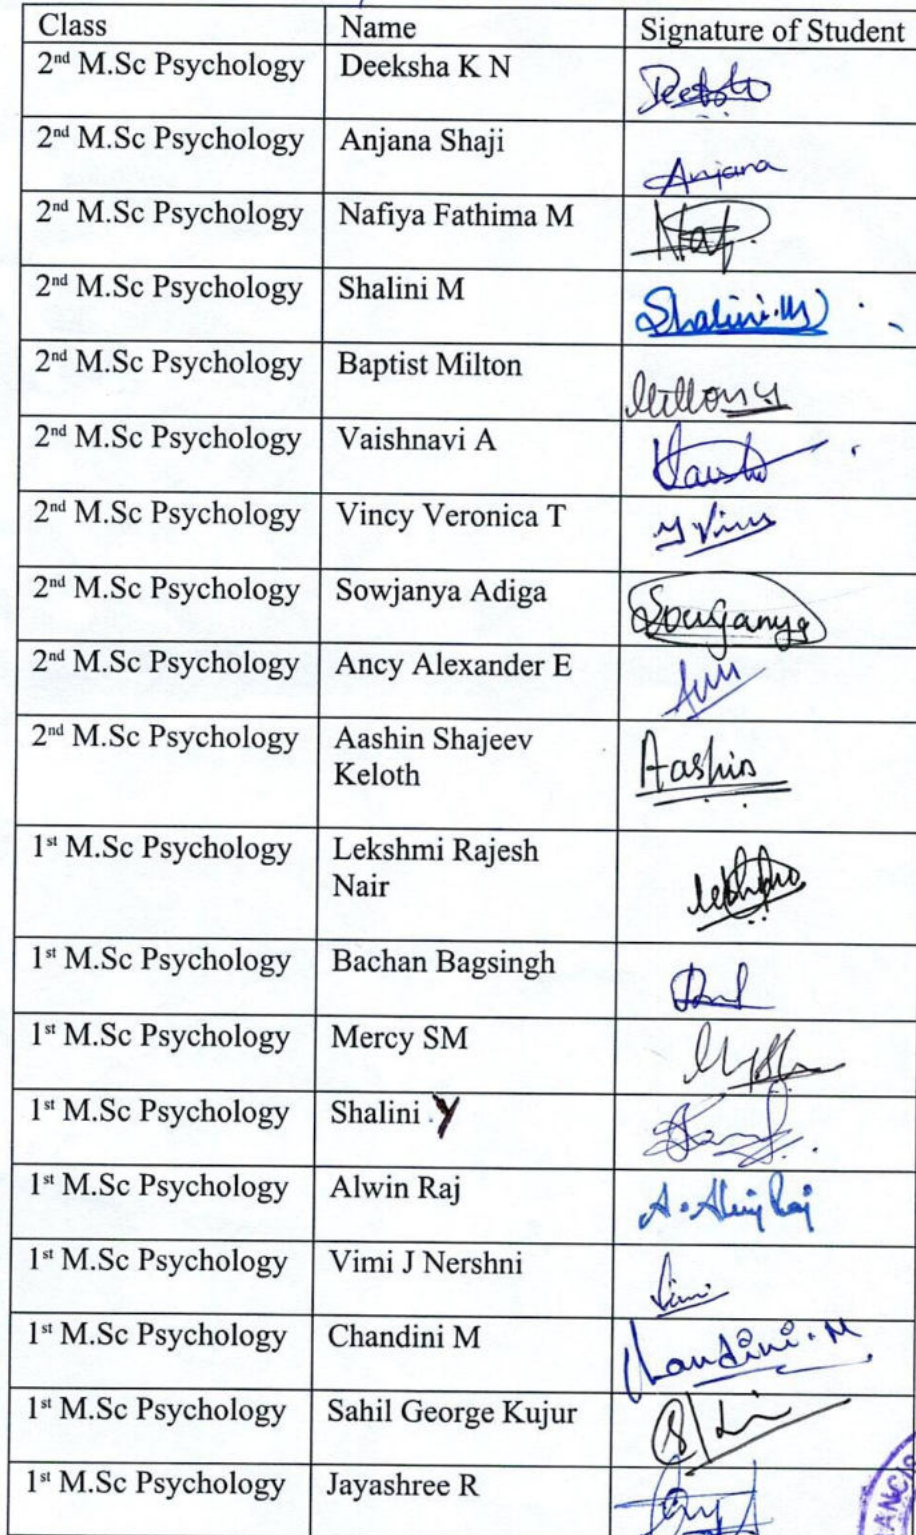 Class Name Signature of Student
2nd M.Sc Psychology Deeksha K N
2nd M.Sc Psychology Anjana Shaji Anjana
2nd M.Sc Psychology Nafiya Fathima M
2nd M.Sc Psychology Shalini M Shalini.M
2nd M.Sc Psychology Baptist Milton
2nd M.Sc Psychology Vaishnavi A
2nd M.Sc Psychology Vincy Veronica T
2nd M.Sc Psychology Sowjanya Adiga
2nd M.Sc Psychology Ancy Alexander E
2nd M.Sc Psychology Aashin Shajeev Aashin
Keloth
1st M.Sc Psychology Lekshmi Rajesh
Nair
1st M.Sc Psychology Bachan Bagsingh
1st M.Sc Psychology Mercy SM
1st M.Sc Psychology Shalini Y
1st M.Sc Psychology Alwin Raj
1st M.Sc Psychology Vimi J Nershni Vimi
1st M.Sc Psychology Chandini M Chandini.M
1st M.Sc Psychology Sahil George Kujur
1st M.Sc Psychology Jayashree R